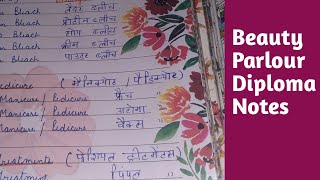 Bleach ब्लीच
Bleach प्रोटीन ब्लीच
Bleach सोप ब्लीच
Bleach क्रीम ब्लीच
Bleach पाउडर ब्लीच
edicure (मेनिक्योर / पेडिक्योर)
Manicure / Pedicure फ्रेंच "
Manicure / Pedicure अरोमा "
Manicure / Pedicure वैक्स "
reatments (फेशियल ट्रीटमेंट्स)
reatment पिंपल "
Beauty
Parlour
Diploma
Notes